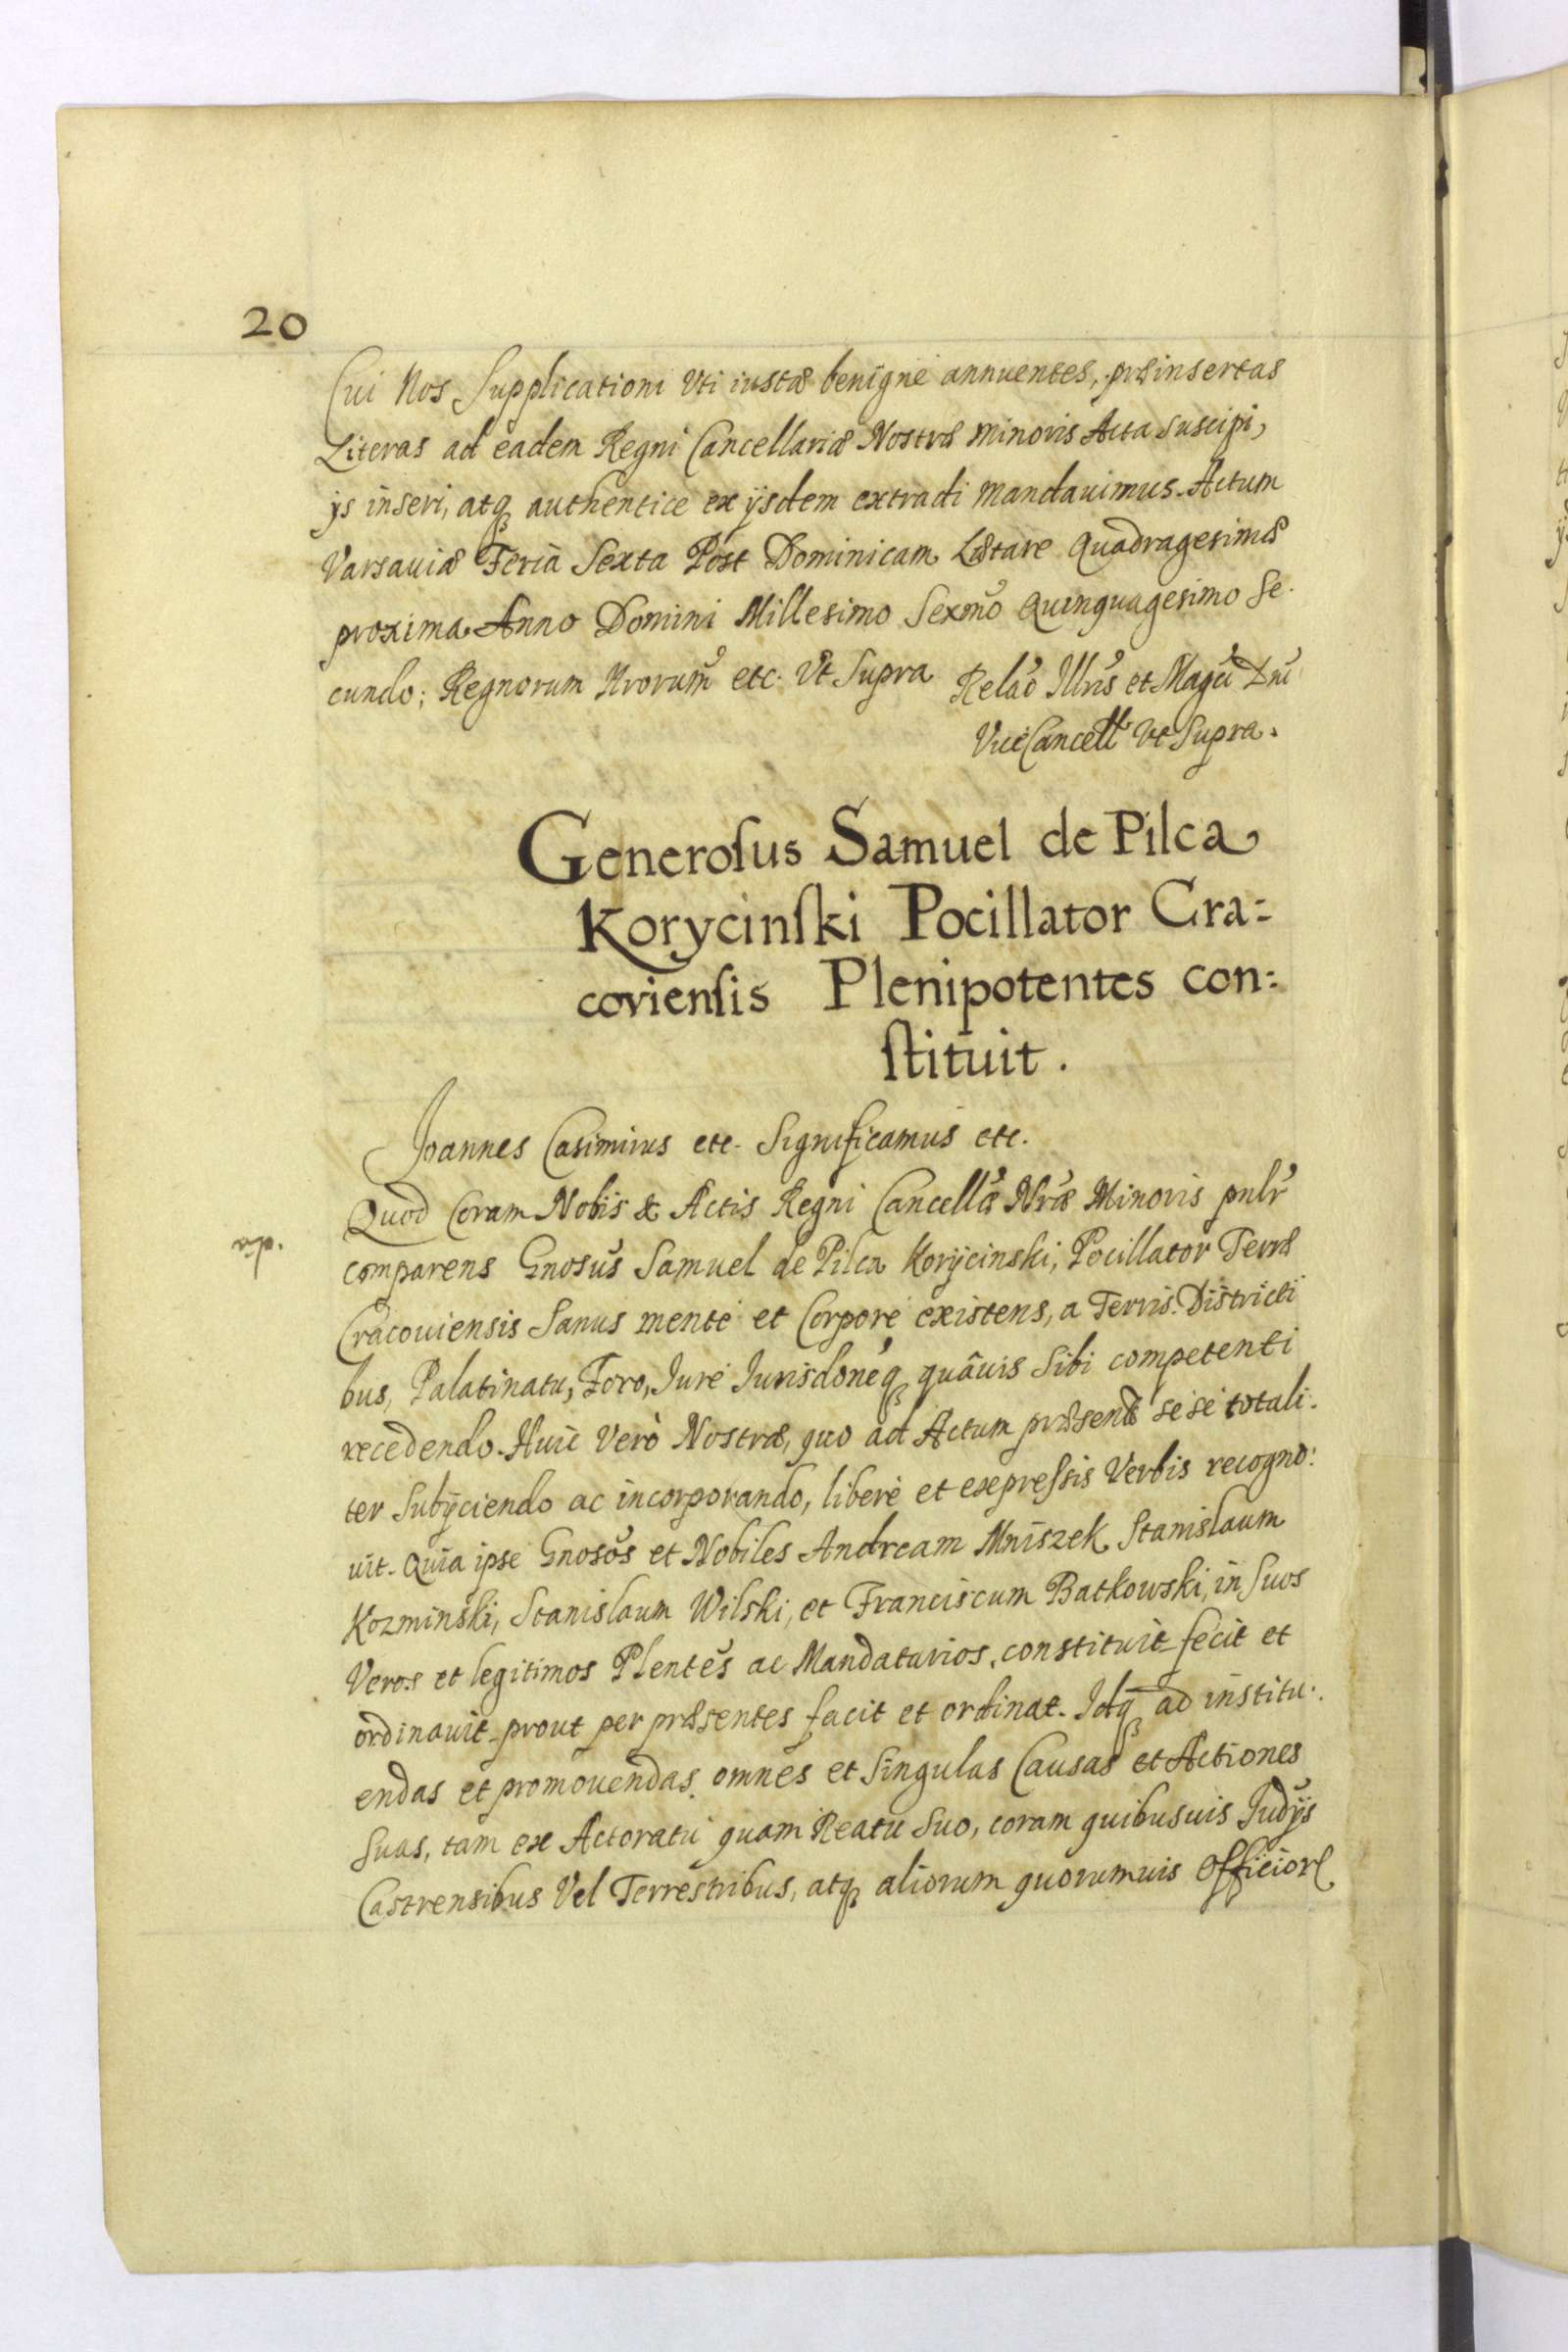 20
Cui Nos Supplicationi Vti iustæ benigne annuentes, præinsertas
Literas ad eadem Regni Cancellariæ Nostræ minoris Acta suscipi,
ijs inseri, atq authentice ex ijsdem extradi mandauimus. Actum
Varsauiæ Feria Sexta Post Dominicam Lætare Quadragesimæ
proxima Anno Domini Millesimo Sexmo Quinquagesimo Se-
cundo; Regnorum Nrorum etc. Vt Supra Relao Illris et Magci Dni
ViceCancell Vt Supra.
Generoſus Samuel de Pilca
Korycinſki Pocillator Cra-
covienſis Plenipotentes con-
ſtituit.
Joannes Casimirus etc. Significamus etc.
Quod Coram Nobis & Actis Regni Cancellæ Nræ Minoris pnlr
comparens Gnosus Samuel de Pilca Korijcinski, Pocillator Terræ
Cracouiensis Sanus mente et Corpore existens, a Terris. Districti
bus, Palatinatu, Foro, Jure Jurisdoneq quâuis Sibi competenti
recedendo. Huic Verò Nostræ, quo ad Actum præsente sese totali-
ter Subijciendo ac incorporando, libere et expreſsis Verbis recogno-
uit. Quia ipse Gnosos et Nobiles Andream Mniszek Stanislaum
Kozminski, Stanislaum Wilski, et Franciscum Batkowski, in Suos
Veros et legitimos Plentes ac Mandatarios, constituit fecit et
ordinauit prout per præsentes facit et ordinat. Idq ad institu-
endas et promouendas omnes et Singulas Causas et Actiones
Suas, tam ex Actoratu quam Reatu Suo, coram quibusuis Judijs
Castrensibus Vel Terrestribus, atq aliorum quorumuis Officior